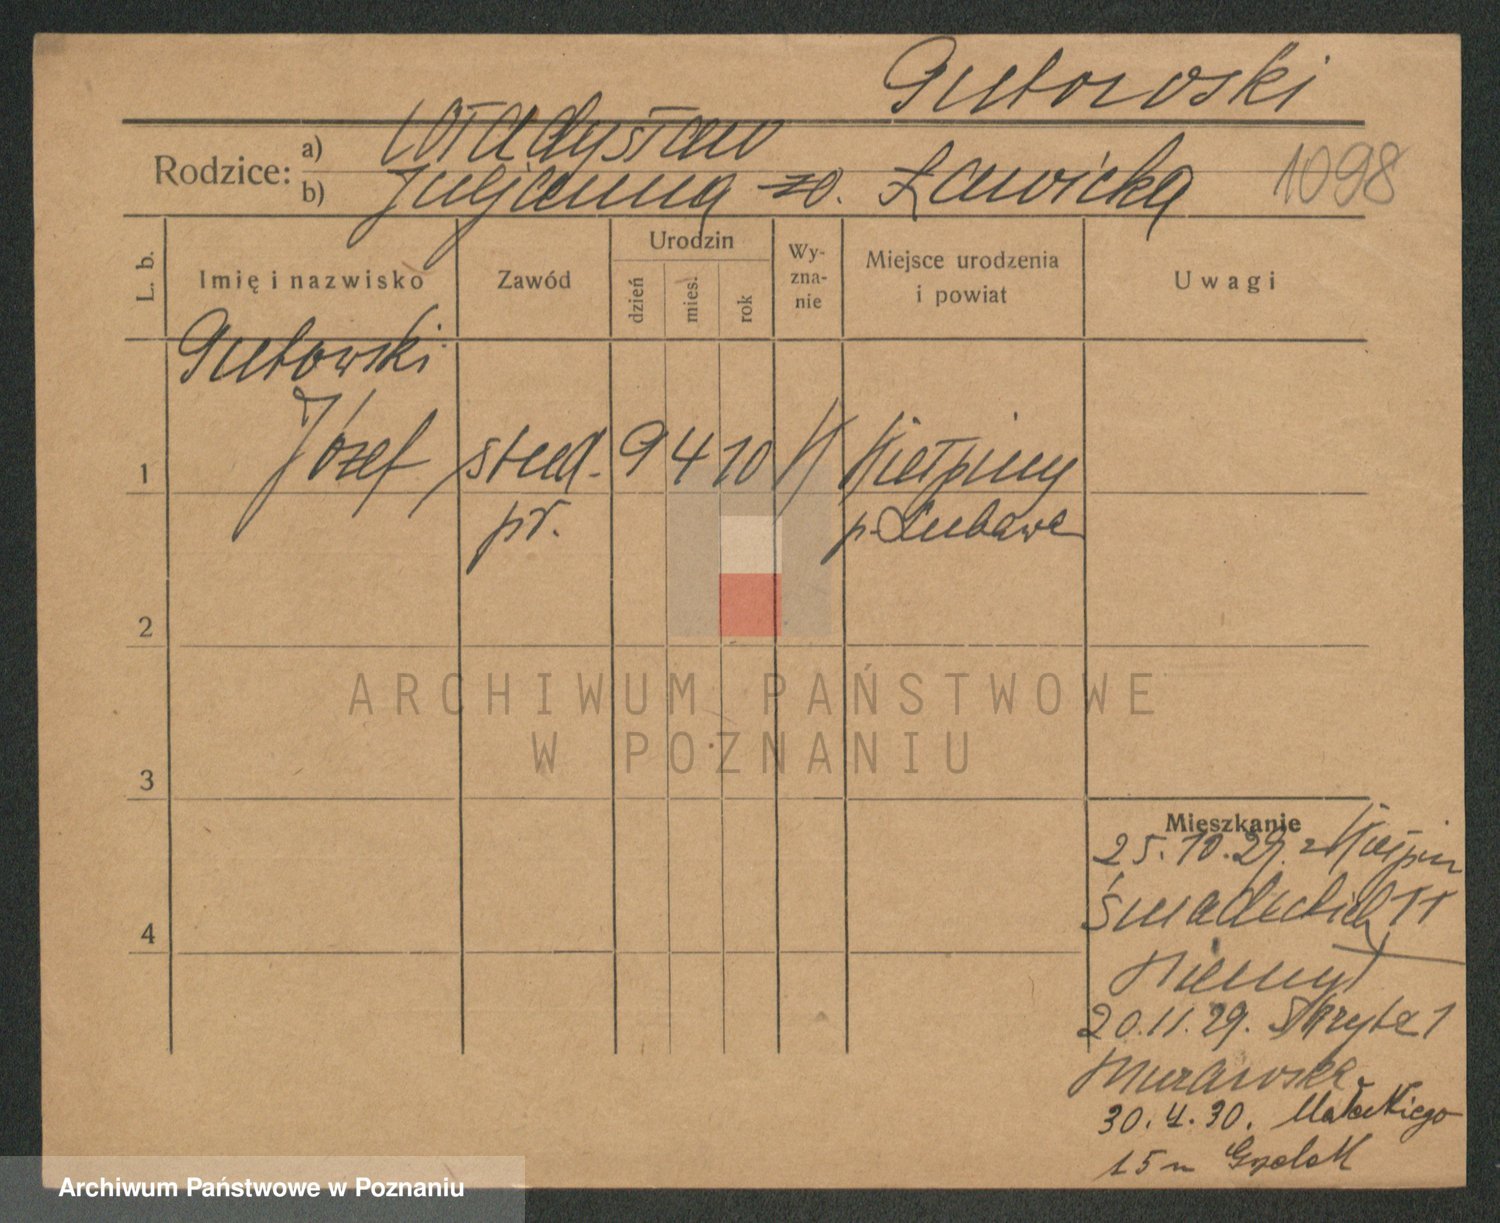 Gutowski
Rodzice: a) Władysław
b) Juljanna zd. Ławicka 1098
L. b. Imię i nazwisko Zawód Urodzin dzień mies. rok Wy-zna-nie Miejsce urodzenia i powiat Uwagi
Gutowski
1 Józef stud. 9 4 10 Kiełpiny
pr. p. Lubawa
2
ARCHIWUM PAŃSTWOWE
W POZNANIU
3
Mieszkanie
25.10.29. z Kiełpin
4 Śniadeckich
20.11.29. Skryta 1
Murawska
30.4.30. Małeckiego
15
Archiwum Państwowe w Poznaniu